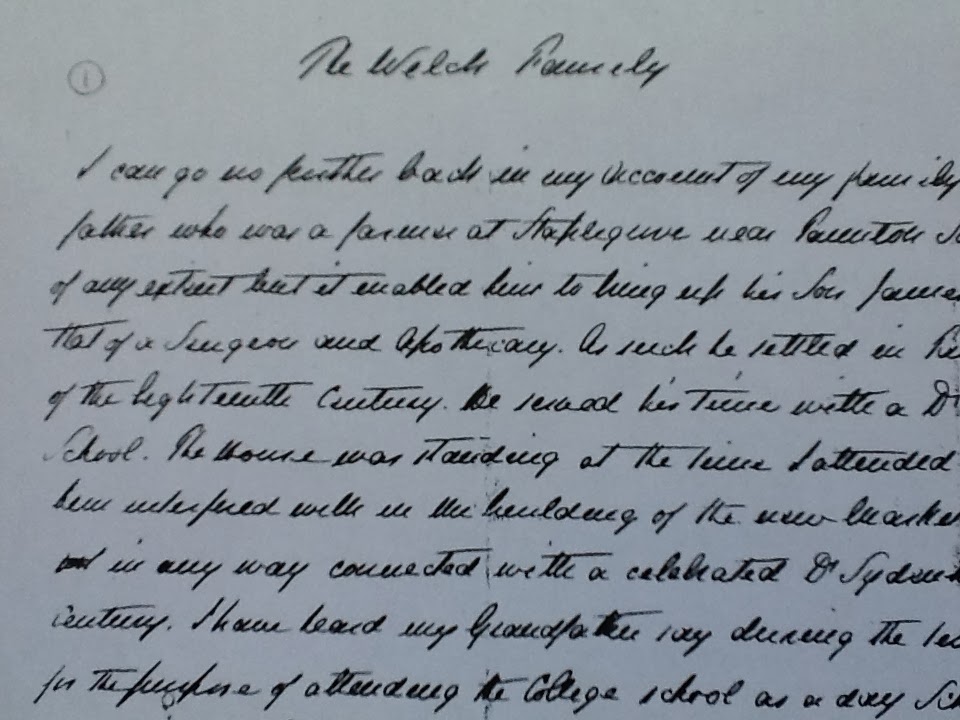 1
The Welch Family
I can go no further back in my account of my family
father who was a farmer at Staplegrove near Taunton
of any extent but it enabled him to bring up his Son James
that of a Surgeon and Apothecary. As such he settled in
of the Eighteenth Century. He served his time with a Dr
School. The House was standing at the time I attended
been interfered with in the building of the new Market
in any way connected with a celebrated Dr Syden
century. I have heard my Grandfather say during the
for the purpose of attending the College school as a day